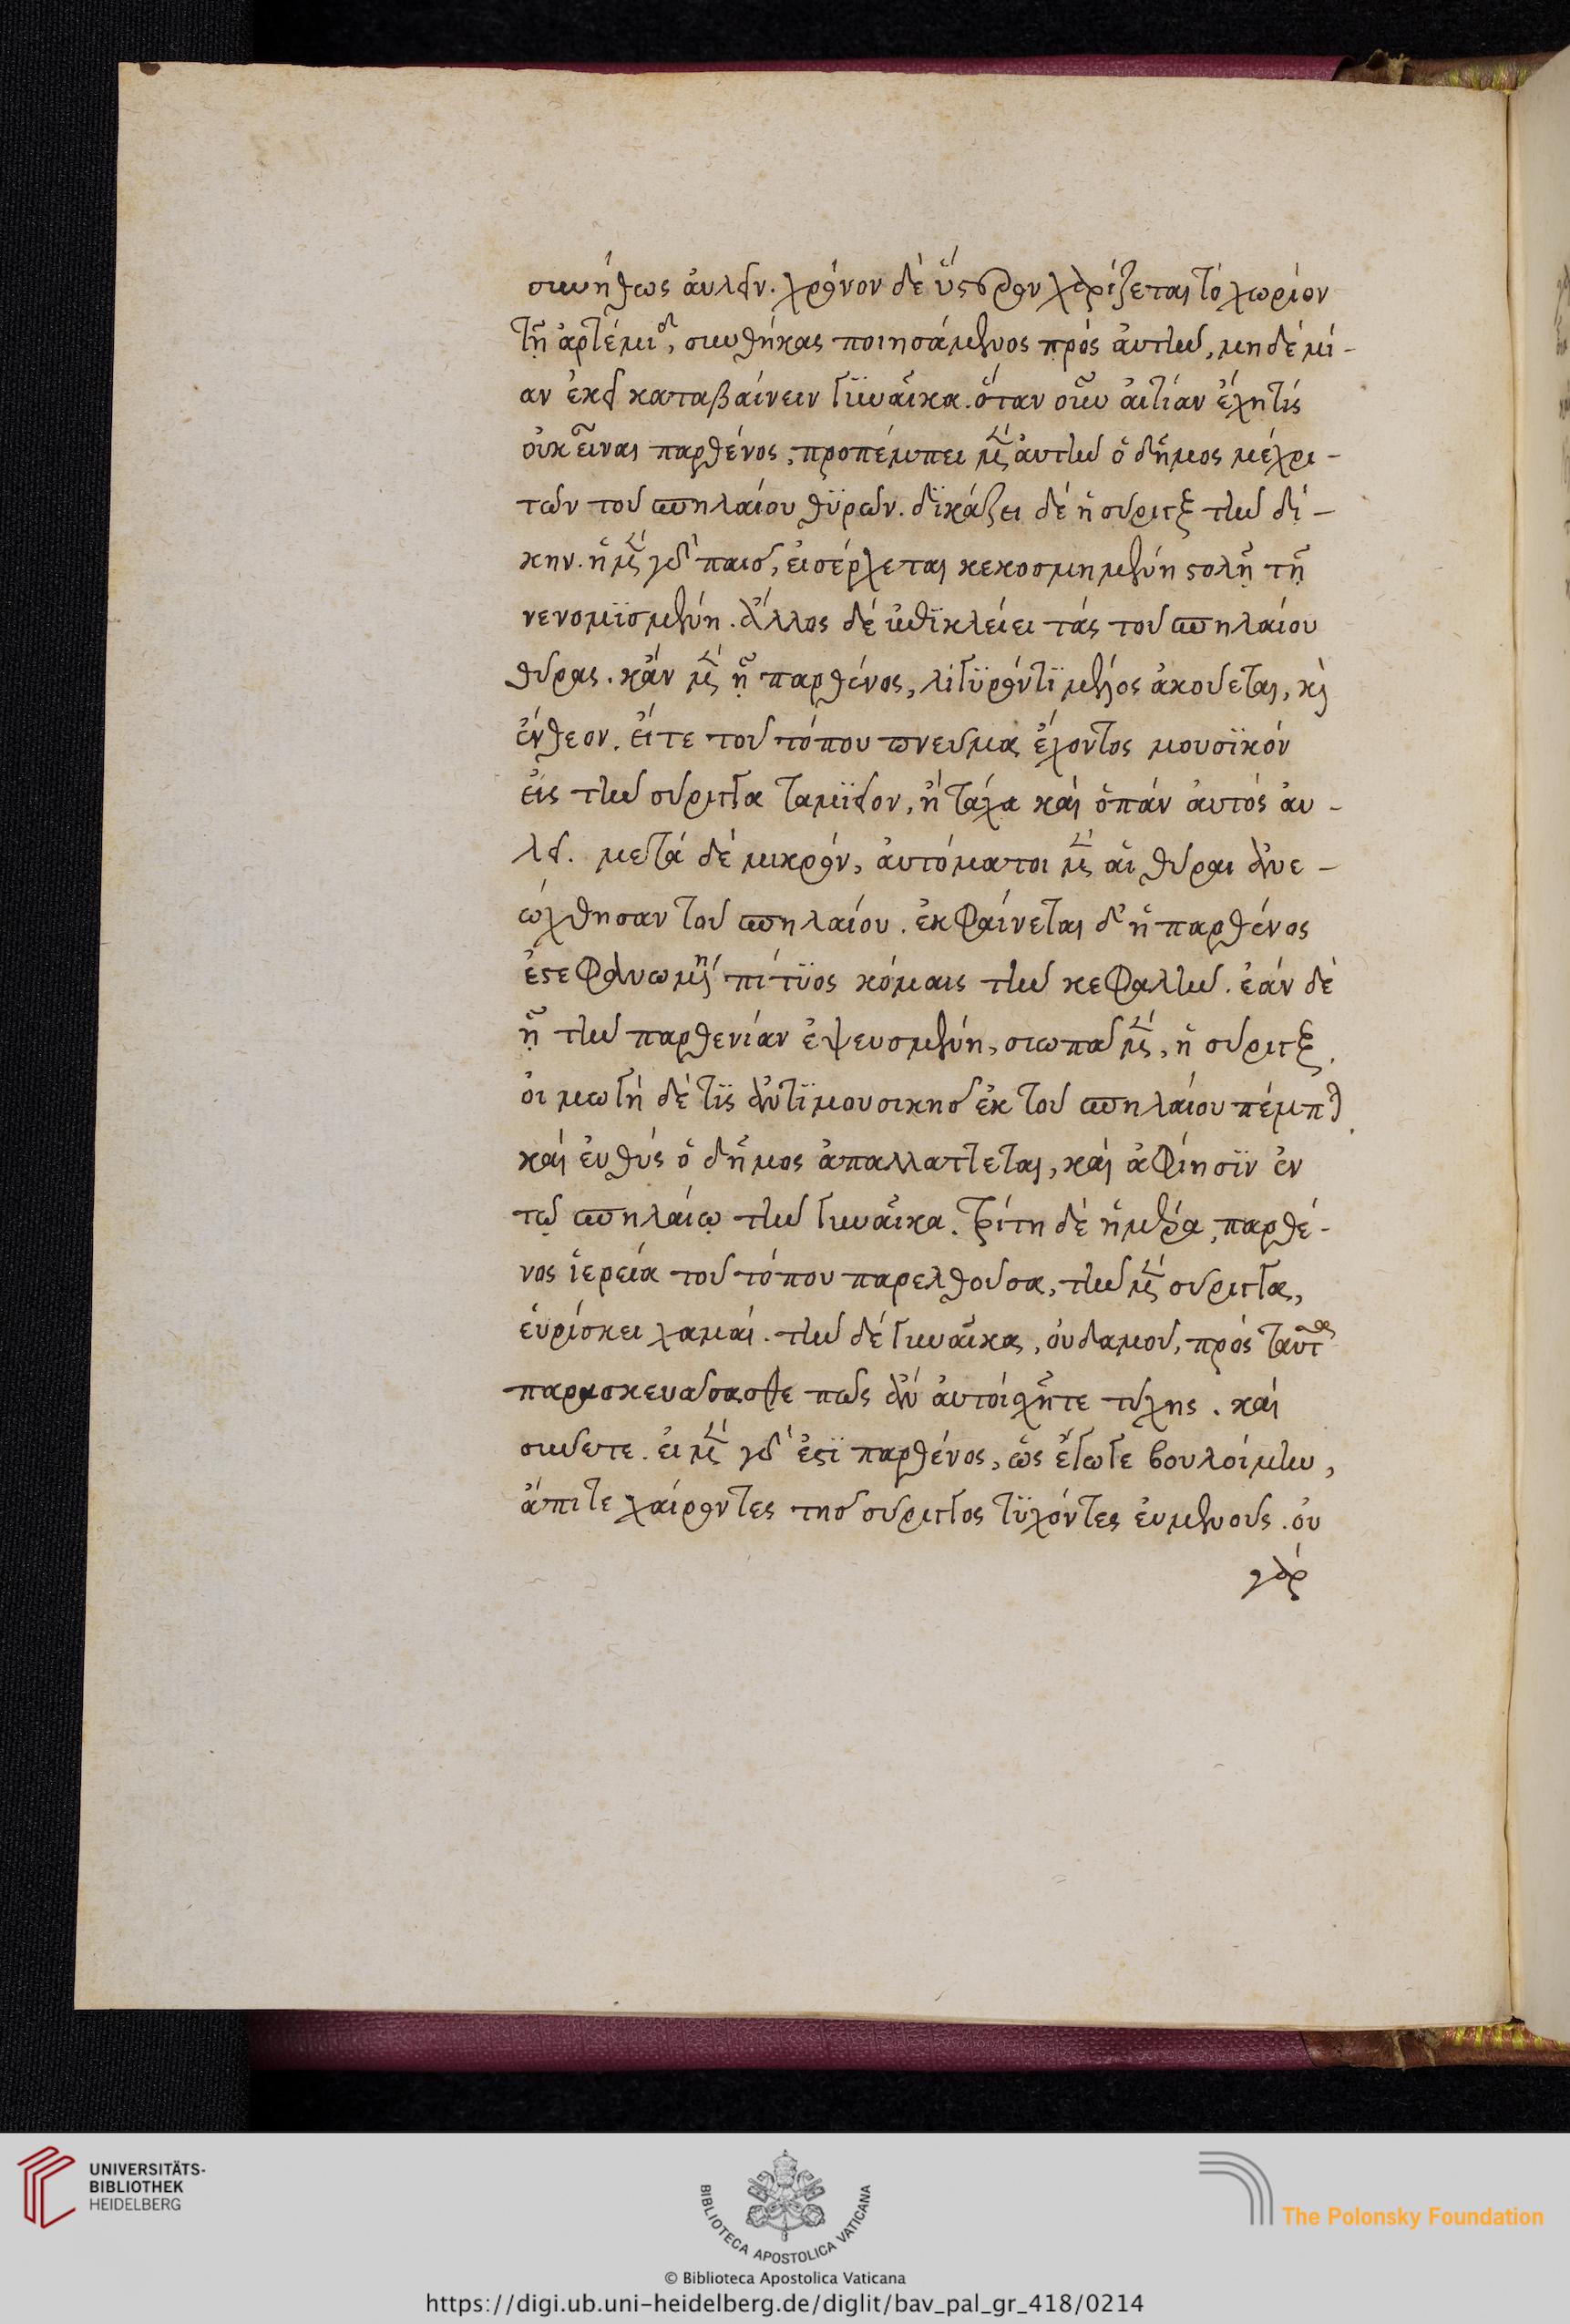 συνήθως αὐλεῖν. χρόνον δὲ ὕστερον χαρίζεται τὸ χωρίον
τῇ ἀρτέμιδι, συνθήκας ποιησάμενος πρὸς αὐτὴν, μηδεμί-
αν ἐκεῖ καταβαίνειν γϋναῖκα. ὅταν οὖν αἰτίαν ἔχῃ τίς
οὐκ εἶναι παρθένος, προπέμπει μὲν αὐτὴν ὁ δῆμος μέχρι-
τῶν τοῦ σπηλαίου θϋρῶν. δϊκάζει δὲ ἡ σῦριγξ τὴν δί-
κην. ἡ μὲν γὰρ παῖς, εἰσέρχεται κεκοσμημένη στολῇ τῇ
νενομϊσμένη. ἄλλος δὲ ἐπϊκλείει τὰς τοῦ σπηλαίου
θύρας. κἂν μὲν ᾖ παρθένος, λιγϋρόν τϊ μέλος ἀκούεται, καὶ
ἔνθεον. εἴτε τοῦ τόπου πνεῦμα ἔχοντος μουσϊκόν
εἰς τὴν σύριγγα ταμϊεῖον, ἢ τάχα καὶ ὁ πὰν αὐτὸς αὐ-
λεῖ. μετὰ δὲ μικρόν, αὐτόματοι μὲν αἱ θύραι ἀνε-
ώχθησαν τοῦ σπηλαίου. ἐκφαίνεται δ' ἡ παρθένος
ἐστεφανωμένη πίτϋος κόμαις τὴν κεφαλήν. ἐὰν δὲ
ᾖ τὴν παρθενίαν ἐψευσμένη, σιωπᾶ μὲν, ἡ σύριγξ.
οἰμωγὴ δὲ τϊς ἀντϊ μουσικῆς ἐκ τοῦ σπηλαίου πέμπεται.
καὶ εὐθὺς ὁ δῆμος ἀπαλλάττεται, καὶ ἀφίησϊν ἐν
τῷ σπηλαίῳ τὴν γυναῖκα. τρίτη δὲ ἡμέρα, παρθέ-
νος ἱερεία τοῦ τόπου παρελθοῦσα, τὴν μὲν σύριγγα,
εὑρίσκει χαμαί. τὴν δὲ γυναῖκα, οὐδαμοῦ, πρὸς ταῦτα
παρασκευάσασθε πῶς ἂν αὐτοὶ σχῆτε τύχης. καὶ
σύνετε. εἰ μὲν γὰρ ἐστϊ παρθένος, ὡς ἔγωγε βουλοίμην,
ἄπιτε χαίροντες τῆς σύριγγος τϋχόντες εὐμενοῦς. οὐ
γὰρ
UNIVERSITÄTS-
BIBLIOTHEK
HEIDELBERG
BIBLIOTECA APOSTOLICA VATICANA
The Polonsky Foundation
© Biblioteca Apostolica Vaticana
https://digi.ub.uni-heidelberg.de/diglit/bav_pal_gr_418/0214